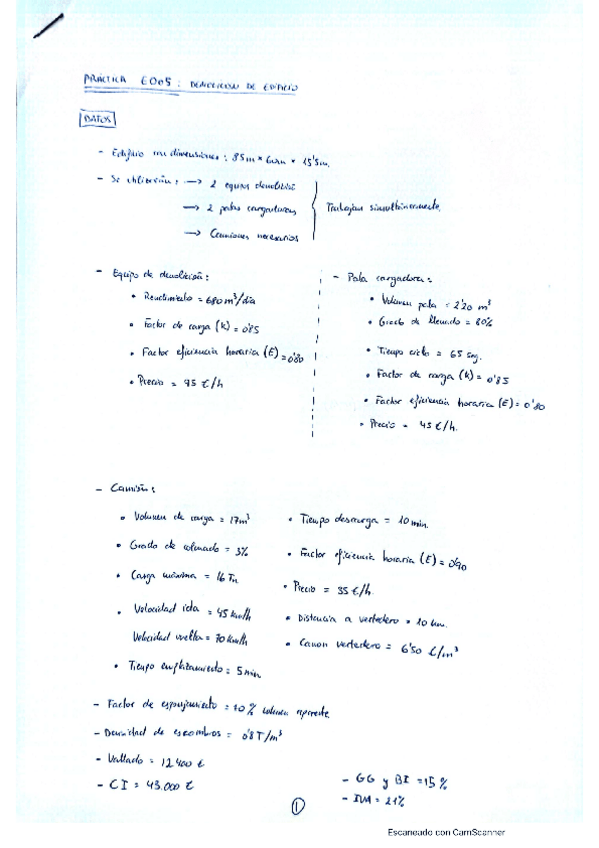 PRÁCTICA E005: DEMOLICIÓN DE EDIFICIO
DATOS
- Edificio con dimensiones: 85m × × 15'5m.
- Se utilizarán: → 2 equipos demolición
→ 2 palas cargadoras
→ Camiones necesarios
Trabajan simultáneamente.
- Equipo de demolición:
• Rendimiento = 680 m³/día
• Factor de carga (K) = 0'85
• Factor eficiencia horaria (E) = 0'80
• Precio = €/h
- Pala cargadora:
• Volumen pala = 2'20 m³
• Grado de llenado = 80%
• Tiempo ciclo = 65 seg.
• Factor de carga (K) = 0'85
• Factor eficiencia horaria (E) = 0'80
• Precio = 45 €/h.
- Camión:
• Volumen de carga = 17m³
• Grado de colmado = 3%
• Carga máxima = 16 Tn
• Velocidad ida = 45 km/h
Velocidad vuelta = 70 km/h
• Tiempo emplazamiento = 5 min
• Tiempo descarga = 10 min.
• Factor eficiencia horaria (E) = 0'90
• Precio = 35 €/h.
• Distancia a vertedero = 10 km.
• Canon vertedero = 6'50 €/m³
- Factor de esponjamiento = % volumen aparente
- Densidad de escombros = 0'8 T/m³
- Vallado = 12400 €
- CI = 43.000 €
- GG y BI = 15%
- IVA = 21%
1
Escaneado con CamScanner